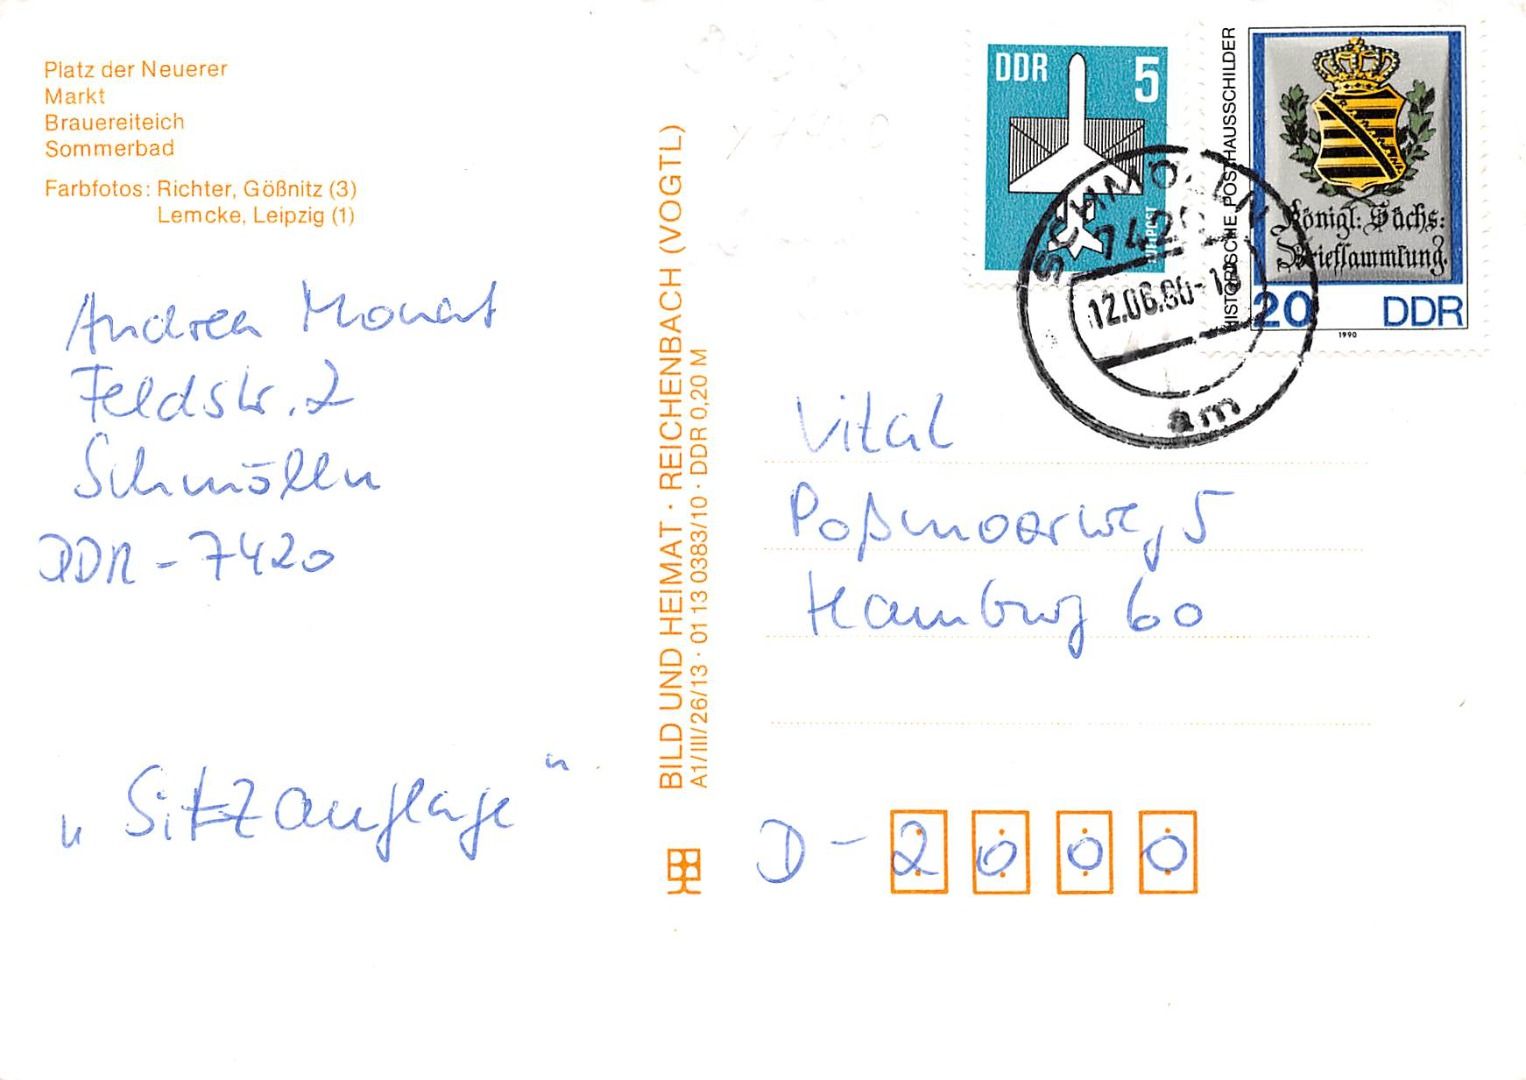 Platz der Neuerer
Markt
Brauereiteich
Sommerbad
Farbfotos: Richter, Gößnitz (3)
Lemcke, Leipzig (1)
Andrea Monat
Feldstr. 2
Schmölln
DDR - 7420
„Sitzauflage“
BILD UND HEIMAT · REICHENBACH (VOGTL)
A1/III/26/13 · 01 13 0383/10 · DDR 0,20 M
DDR 5
LUFTPOST
HISTORISCHE POSTHAUSSCHILDER
Königl: Sächs:
Briefsammlung.
20 DDR
1990
SCHMÖLLN
7420
12.06.90-18
am
Vital
Poßmoorweg 5
Hamburg 60
D - 2000